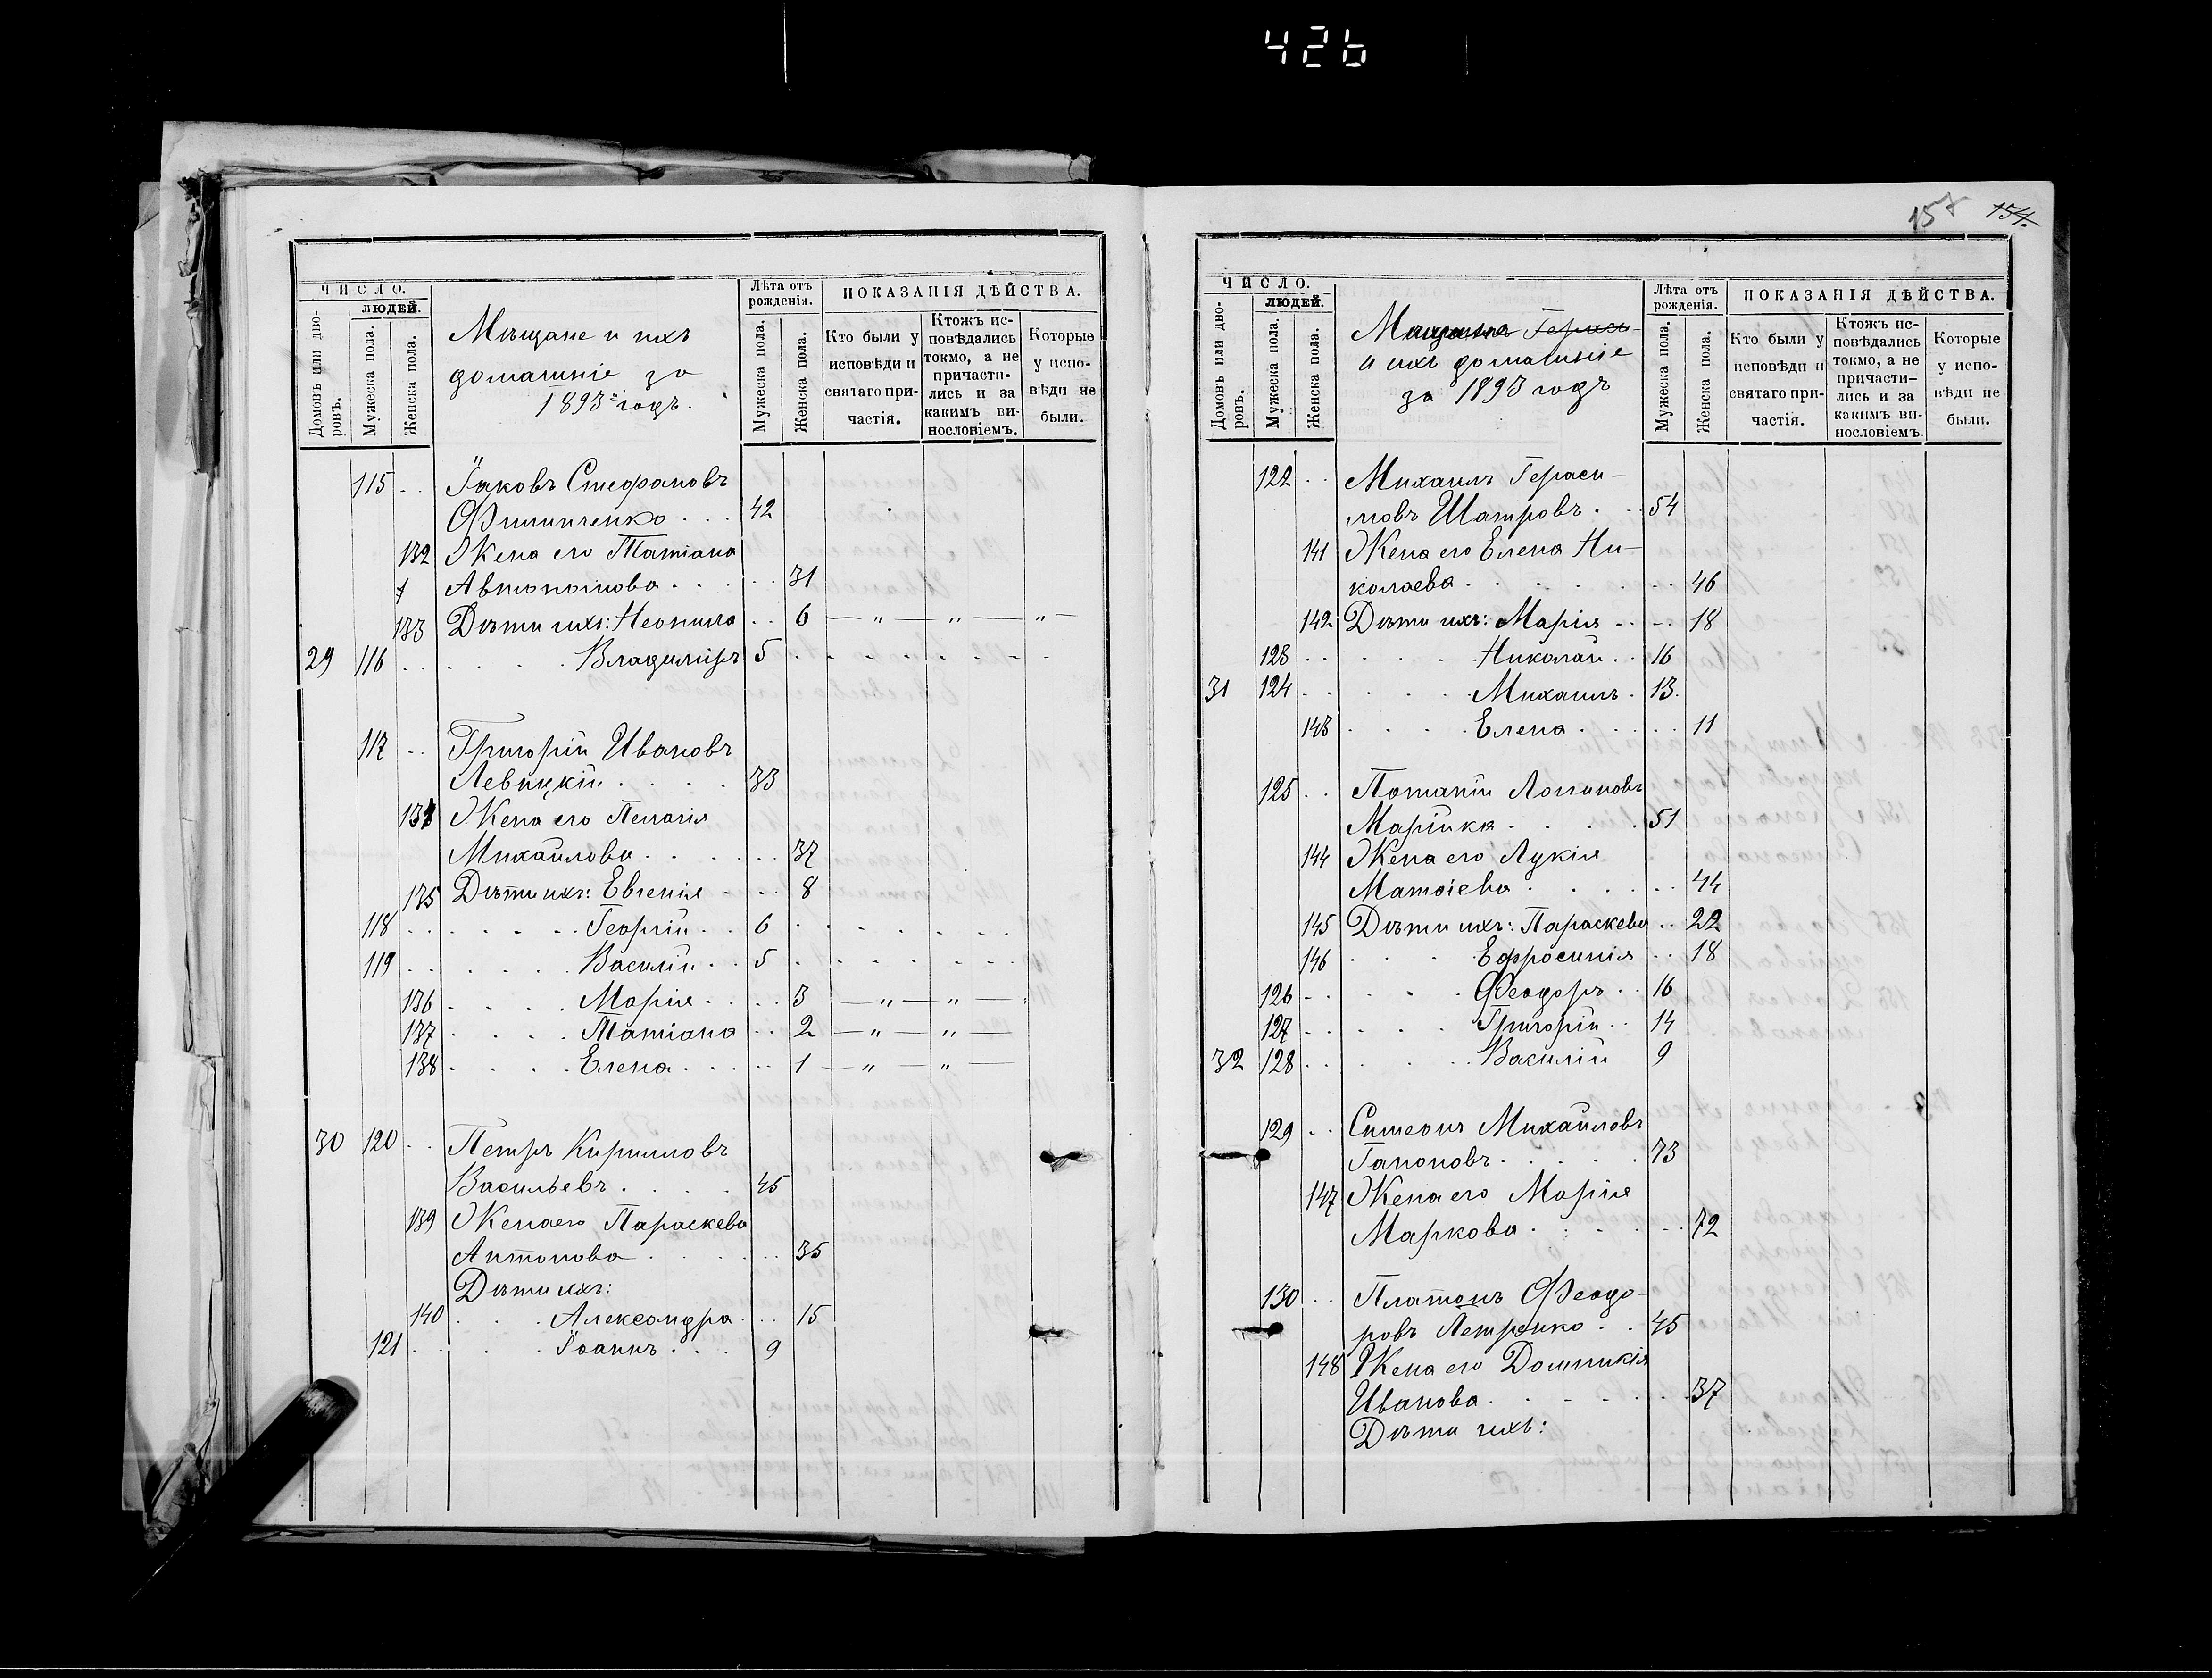 426
ЧИСЛО.
ЛЮДЕЙ.
Домовъ или дво-
ровъ.
Мужеска пола.
Женска пола.
Мѣщане и ихъ
домашніе за
1893 годъ.
Лѣта отъ
рожденія.
Мужеска пола.
Женска пола.
ПОКАЗАНІЯ ДѢЙСТВА.
Кто были у
исповѣди и
святаго при-
частія.
Ктожъ ис-
повѣдались
токмо, а не
причасти-
лись и за
какимъ ви-
нословіемъ.
Которые
у испо-
вѣди не
были.
115 . . Іаковъ Стефановъ
Филипченко . . . 42
132 Жена его Татіана
Автономова . . . . . 31
133 Дѣти ихъ: Неонила . . 6 — „ — „ — „ —
29 116 . . . . . . Владиміръ 5 . . . . . . . .
117 . . Григорій Ивановъ
Левицкій . . . . 33
134 Жена его Пелагія
Михайлова . . . . . . 37
135 Дѣти ихъ: Евгенія - . . 8
118 . . . . . . Георгій . . 6 . . . . . . .
119 . . . . . . Василій . . 5 . . . . . . .
136 . . . . Марія . . . . 3 — „ — „ —
137 . . . . Татіана . . 2 — „ — „ —
138 . . . . Елена . . . . . 1 — „ — „ —
30 120 . . Петръ Кирилловъ
Васильевъ . . . . 45
139 Жена его Параскева
Антонова . . . . . . 35
Дѣти ихъ:
140 . . . Александра . . . 15
121 . . . . . Іоаннъ . . . 9
154.
ЧИСЛО.
ЛЮДЕЙ.
Домовъ или дво-
ровъ.
Мужеска пола.
Женска пола.
Мѣщане
и ихъ домашніе
за 1893 годъ
Лѣта отъ
рожденія.
Мужеска пола.
Женска пола.
ПОКАЗАНІЯ ДѢЙСТВА.
Кто были у
исповѣди и
святаго при-
частія.
Ктожъ ис-
повѣдались
токмо, а не
причасти-
лись и за
какимъ ви-
нословіемъ
Которые
у испо-
вѣди не
были.
122 . . Михаилъ Гераси-
мовъ Шатровъ . . . 54
141 Жена его Елена Ни-
колаева . . . . . . . . 46
142 Дѣти ихъ: Марія . . . . 18
123 . . . . . . Николай . . 16
31 124 . . . . . . Михаилъ . 13.
143 . . . . Елена . . . . . . 11
125 . . Потапій
Марійка . . . . . 51
144 Жена его Лукія
Матѳіева . . . . . . 44
145 Дѣти ихъ: Параскева . . 22
146 . . . . Ефросинія . . 18
126 . . . . Феодоръ . . 16
127 . . . . . Григорій . . 14
32 128 . . . . . . Василій 9
129 . . Симеонъ Михайловъ
Гапоновъ . . . . . 73
147 Жена его Марія
Маркова . . . . . . . 72
130 . . Платонъ Феодо-
ровъ Петренко . . 45
148 Жена его Домникія
Иванова . . . . . . . 37
Дѣти ихъ: